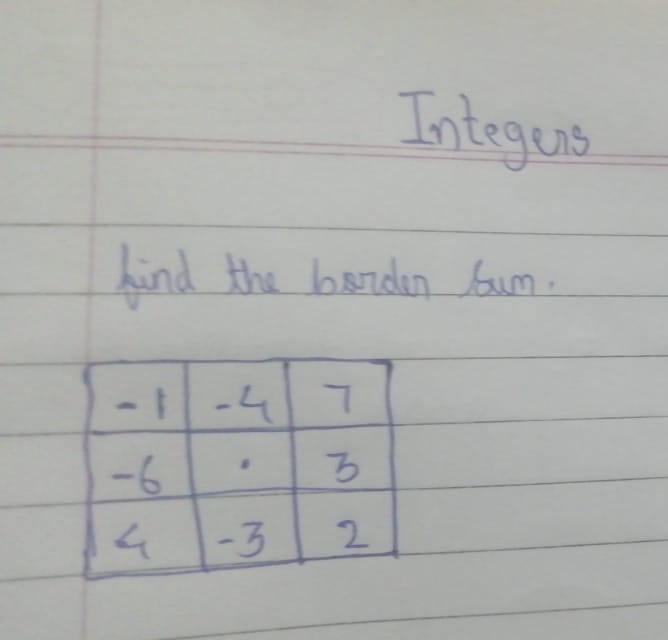 Integers
find the border sum.
-1 -4 7
-6 · 3
4 -3 2